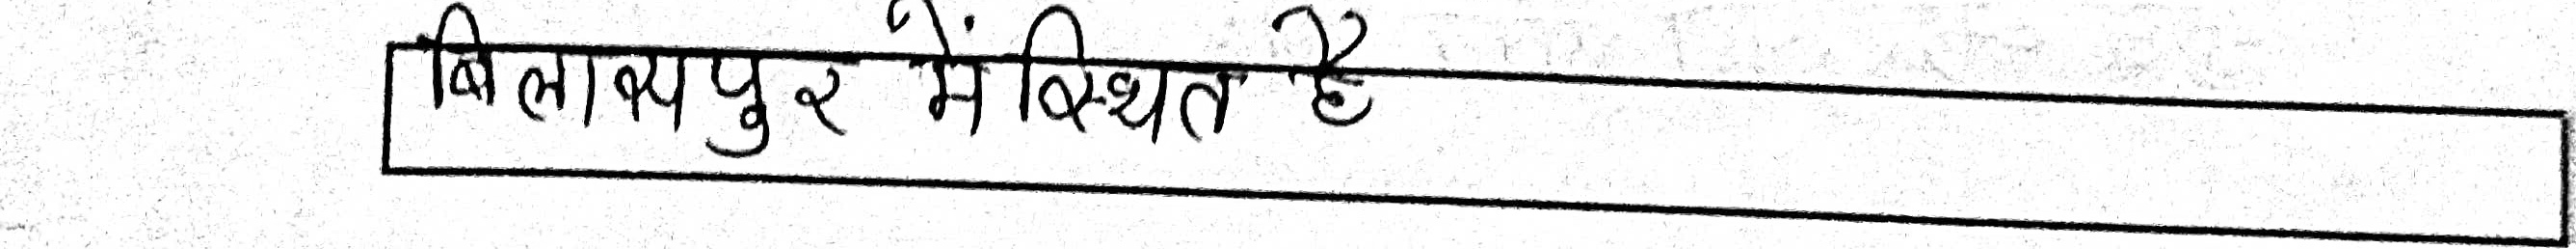 बिलासपुर में स्थित है